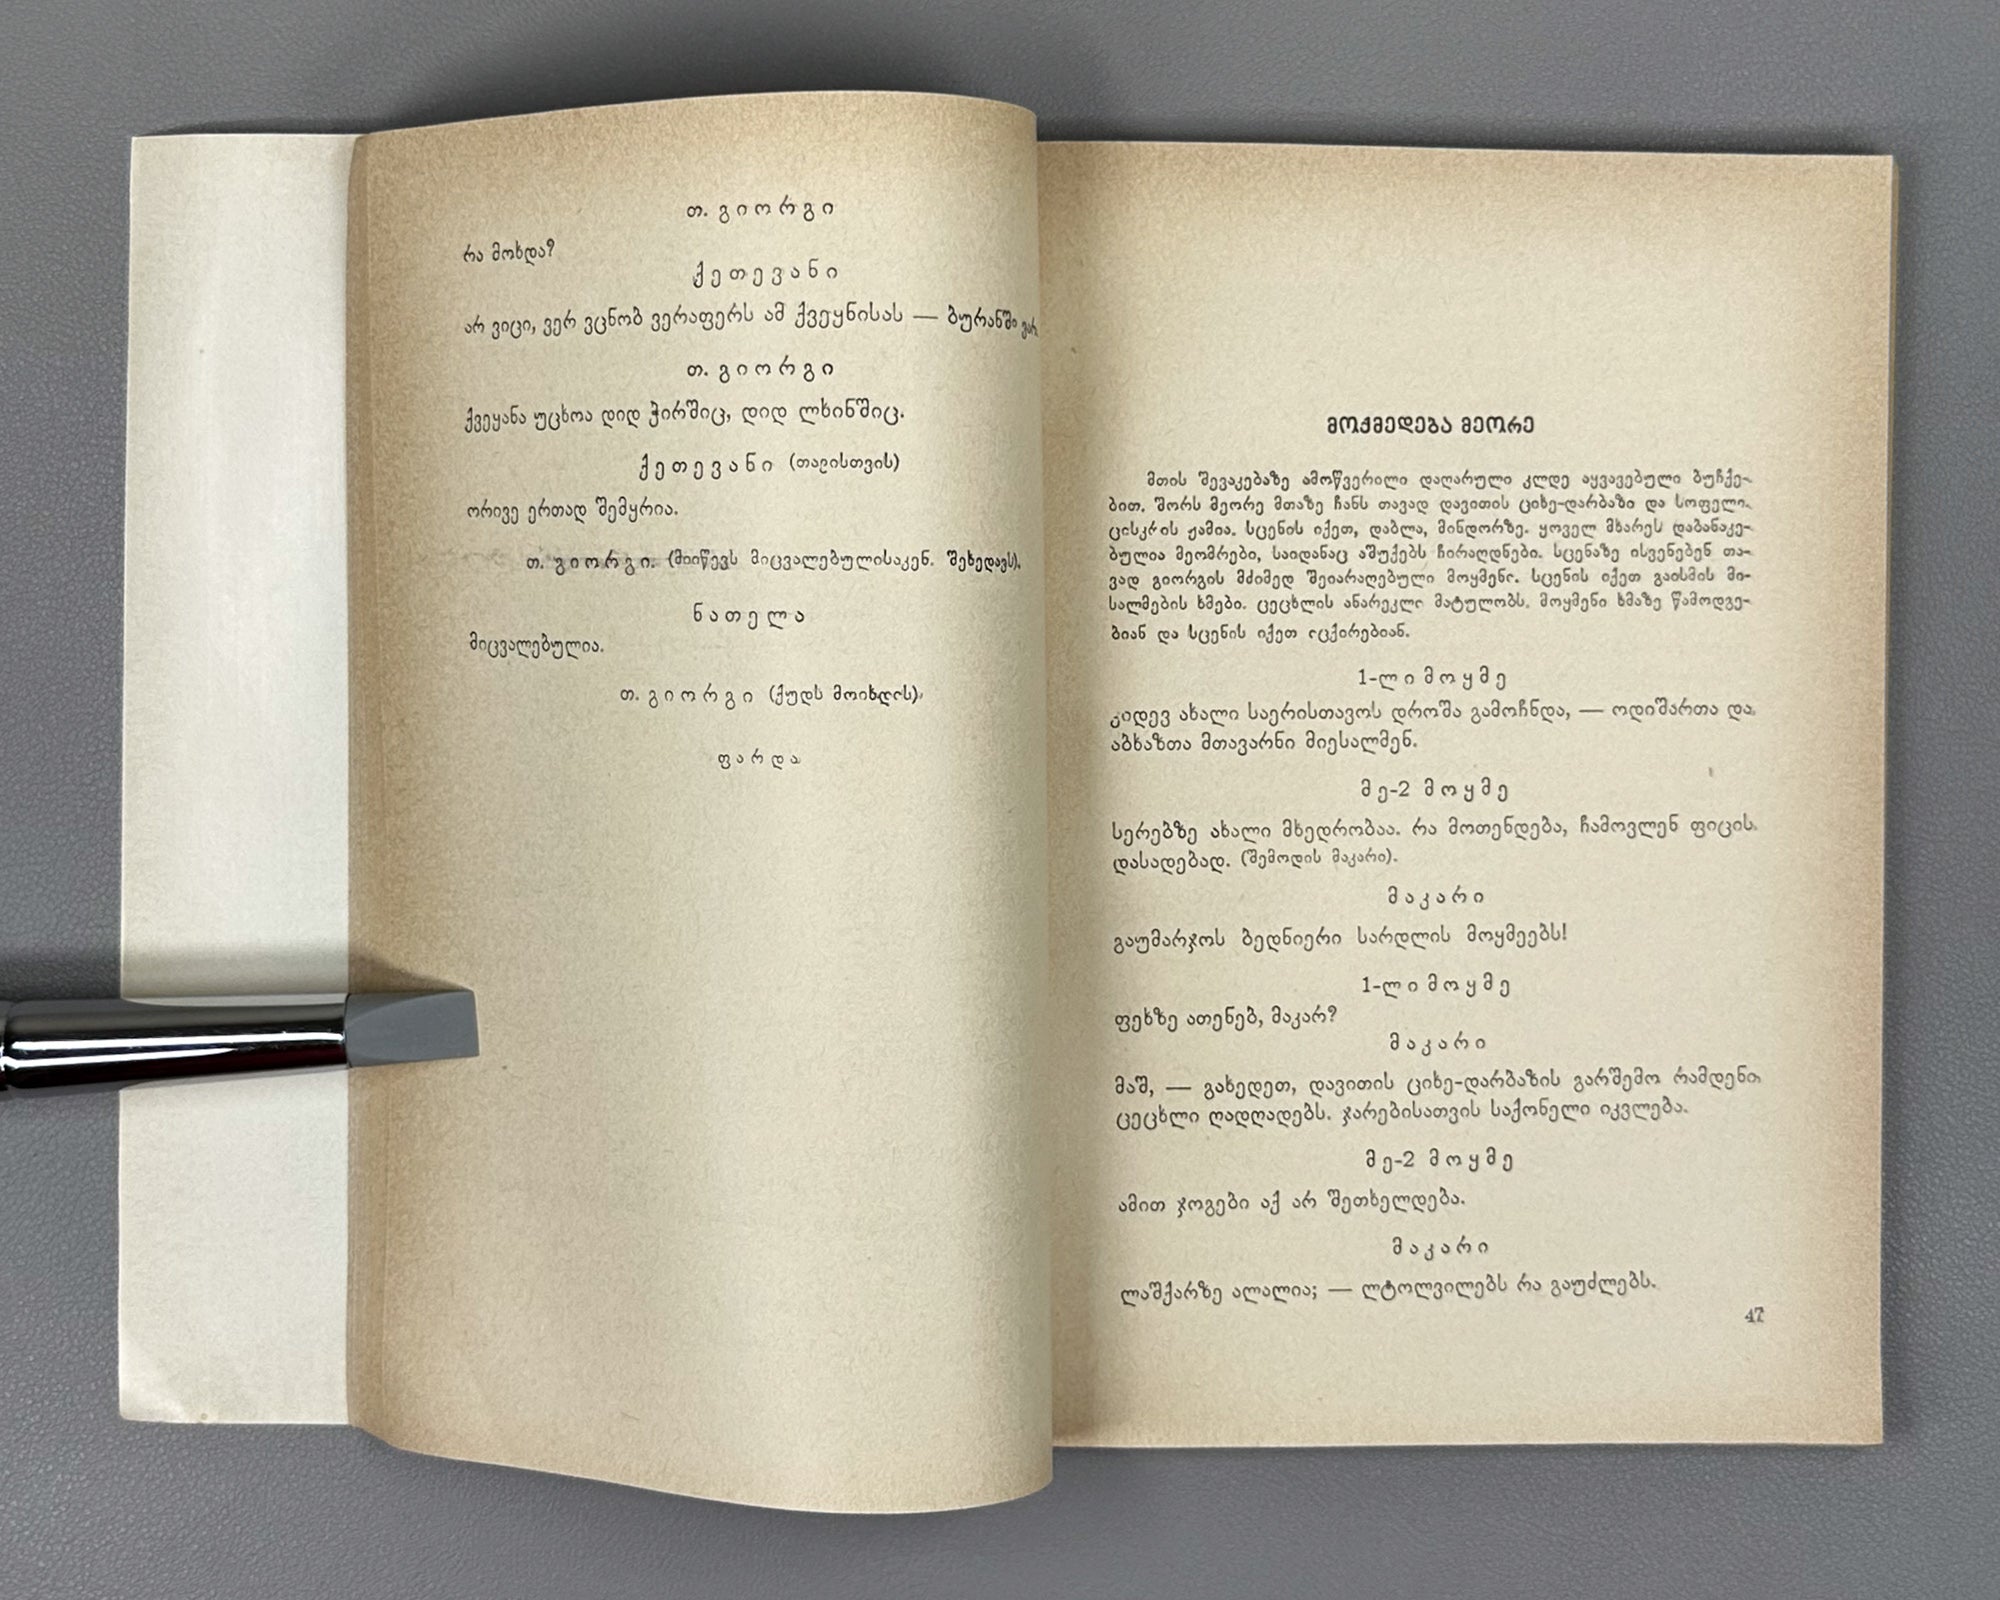 თ. გიორგი
რა მოხდა?
ქეთევანი
არ ვიცი, ვერ ვცნობ ვერაფერს ამ ქვეყნისას — ბურანში ვარ
თ. გიორგი
ქვეყანა უცხოა დიდ ჭირშიც, დიდ ლხინშიც.
ქეთევანი (თავისთვის)
ორივე ერთად შემყრია.
თ. გიორგი. (მიიწევს მიცვალებულისაკენ. შეხედავს).
ნათელა
მიცვალებულია.
თ. გიორგი (ქუდს მოიხდის).
ფარდა
მოქმედება მეორე
მთის შევაკებაზე ამოწვერილი დაღარული კლდე აყვავებული ბუჩქე-
ბით. შორს მეორე მთაზე ჩანს თავად დავითის ციხე-დარბაზი და სოფელი.
ცისკრის ჟამია. სცენის იქეთ, დაბლა, მინდორზე. ყოველ მხარეს დაბანაკე-
ბულია მეომრები, საიდანაც აშუქებს ჩირაღდნები. სცენაზე ისვენებენ თა-
ვად გიორგის მძიმედ შეიარაღებული მოყმენი. სცენის იქეთ გაისმის მი-
სალმების ხმები. ცეცხლის ანარეკლი მატულობს. მოყმენი ხმაზე წამოდგე-
ბიან და სცენის იქეთ იცქირებიან.
1-ლი მოყმე
კიდევ ახალი საერისთავოს დროშა გამოჩნდა, — ოდიშართა და
აბხაზთა მთავარნი მიესალმენ.
მე-2 მოყმე
სერებზე ახალი მხედრობაა. რა მოთენდება, ჩამოვლენ ფიცის
დასადებად. (შემოდის მაკარი).
მაკარი
გაუმარჯოს ბედნიერი სარდლის მოყმეებს!
1-ლი მოყმე
ფეხზე ათენებ, მაკარ?
მაკარი
მაშ, — გახედეთ, დავითის ციხე-დარბაზის გარშემო რამდენი
ცეცხლი ღადღადებს. ჯარებისათვის საქონელი იკვლება.
მე-2 მოყმე
ამით ჯოგები აქ არ შეთხელდება.
მაკარი
ლაშქარზე ალალია; — ლტოლვილებს რა გაუძლებს.
47